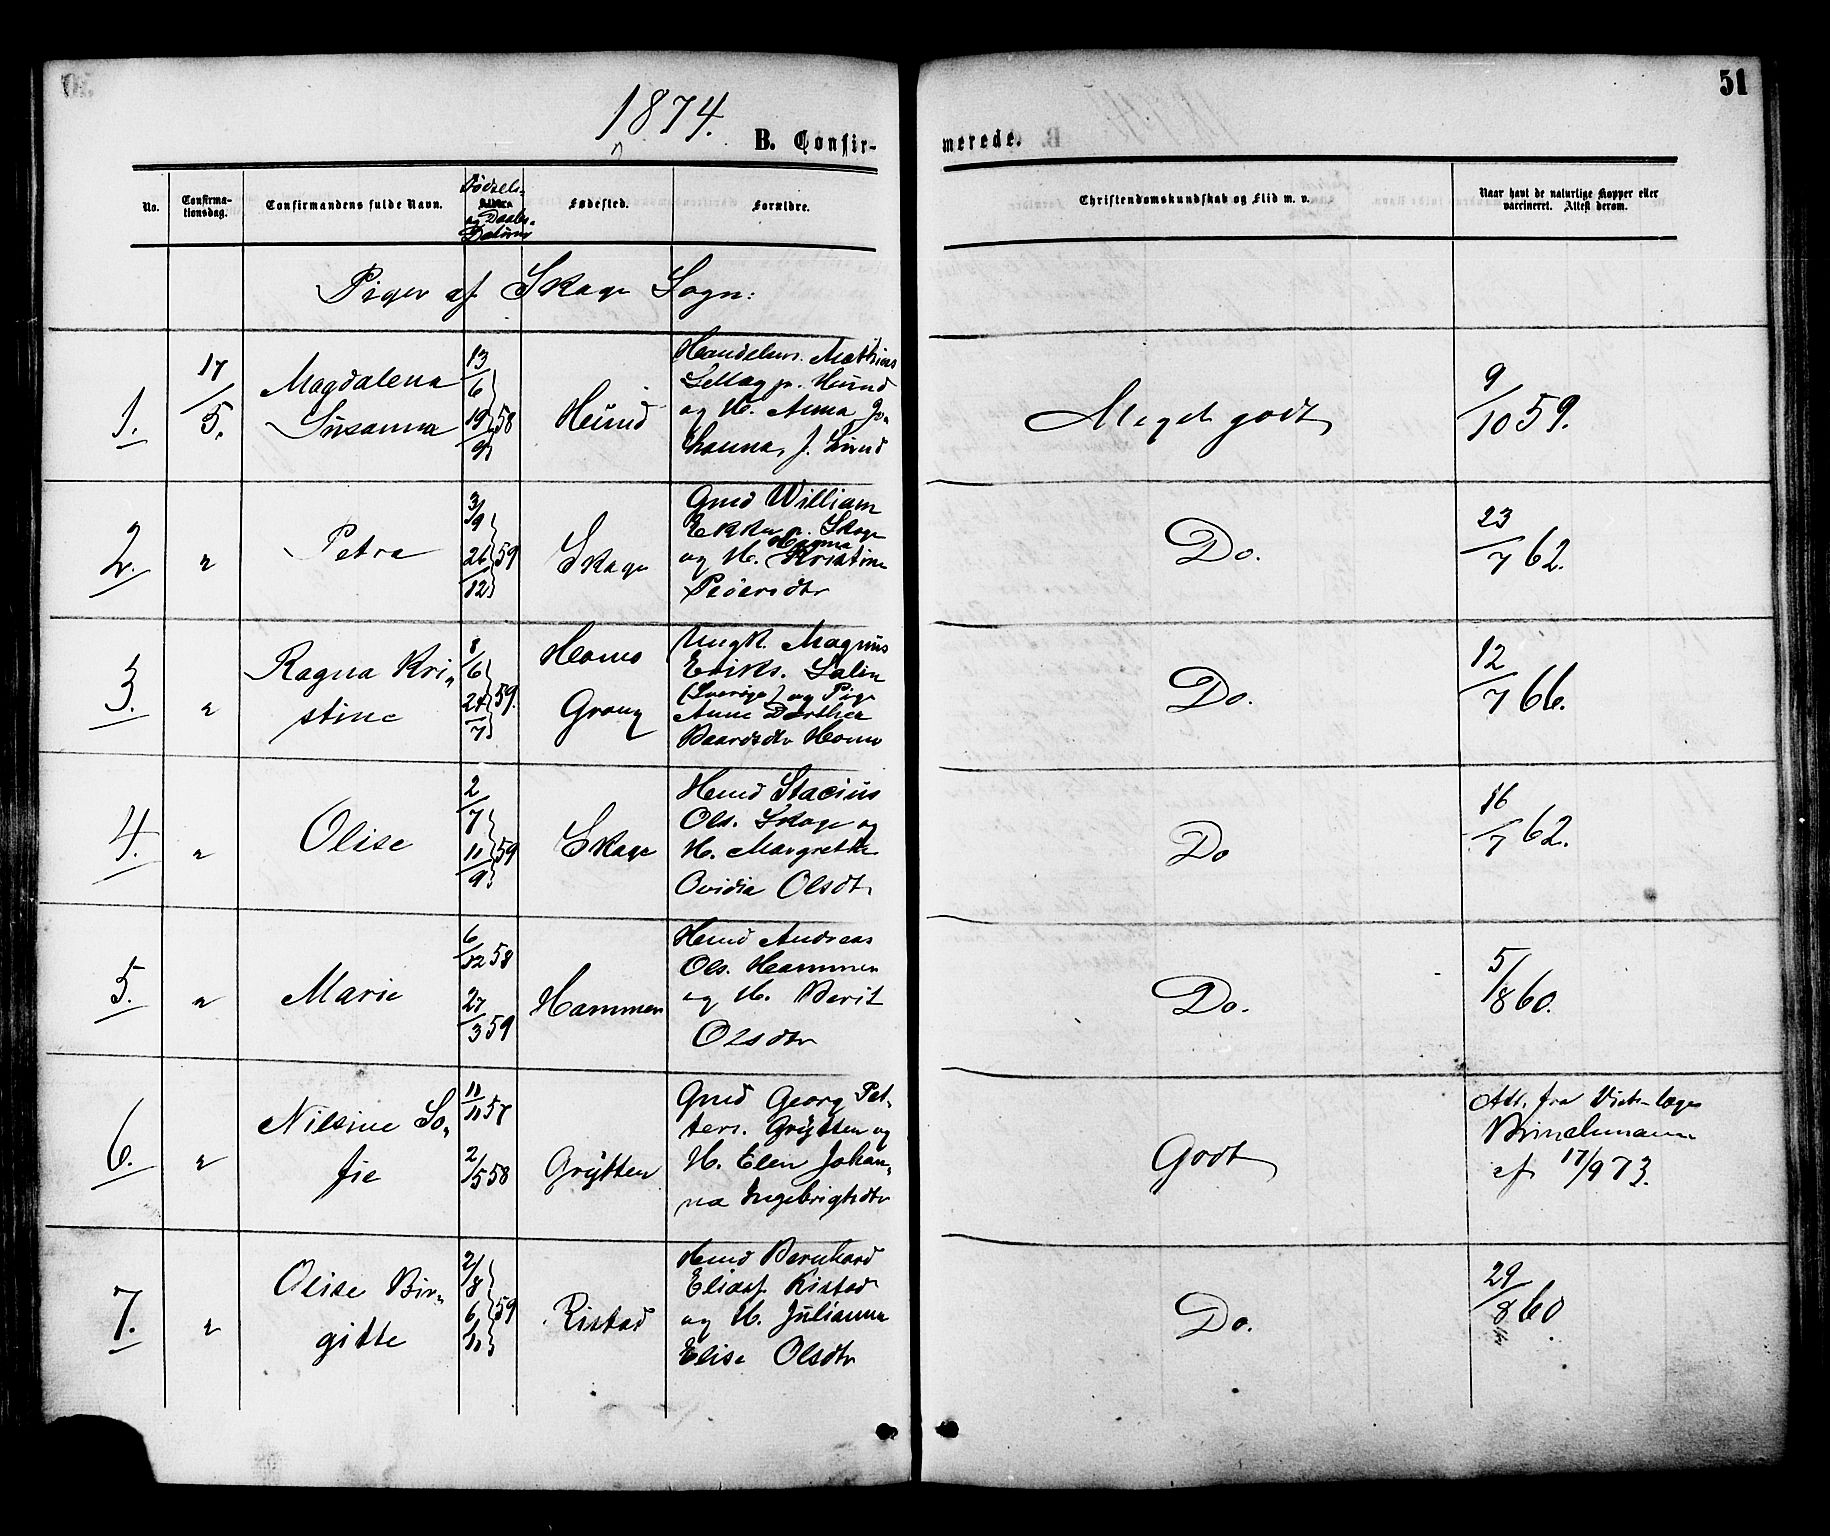 51
1874.
B. Confirmerede.
No.
Confirma-
tionsdag.
Confirmandens fulde Navn.
Fødsels-
og Daabs-
Datum
Fødested.
Forældre.
Christendomskundskab og Flid m. v.
Naar havt de naturlige Kopper eller
vaccineret. Attest derom.
Piger af Skage Sogn:
1.
17/5.
Magdalena
Susanna
13/6
19/9 58
Hund
Handelsm. Mathias
Sellæg p. Hund
og H. Anna Jo-
hanna, f. Lund
Meget godt
9/10 59.
2.
"
Petra
3/9
26/12 59
Skage
Gmd William
p. Skage
og H. Hagma Kristine
Peders dtr
Do.
23/7 62.
3.
"
Ragna Kri-
stine
8/6
24/7 59.
Homo
Grong
Ungk. Magnus
Eriks. Salin
(Sverige) og Pige
Anne Dorthea
Baardsdtr Homo
Do.
12/7 66.
4.
"
Olise
2/7
11/9 59
Skage
Hmd Stacius
Ols. Skage og
H. Margrethe
Ovidia Olsdt.
Do
16/7 62.
5.
"
Marie
6/12 58
27/3 59
Hammen
Hmd Andreas
Ols. Hammen
og H. Berit
Olsdtr
Do.
5/8 60.
6.
"
Nilsine So-
fie
11/11 57
2/5 58
Grytten
Gmd Georg Pet-
ters. Grytten og
H. Elen Johan-
na Ingebrigtsdtr
Godt
Att. fra Distr. læge
Brinchmann
af 17/9 73.
7.
"
Olise Bir-
gitte
2/8
6/11 59
Ristad
Hmd Bernhard
Eliass. Ristad
og H. Julianna
Elise Olsdtr
Do.
29/8 60